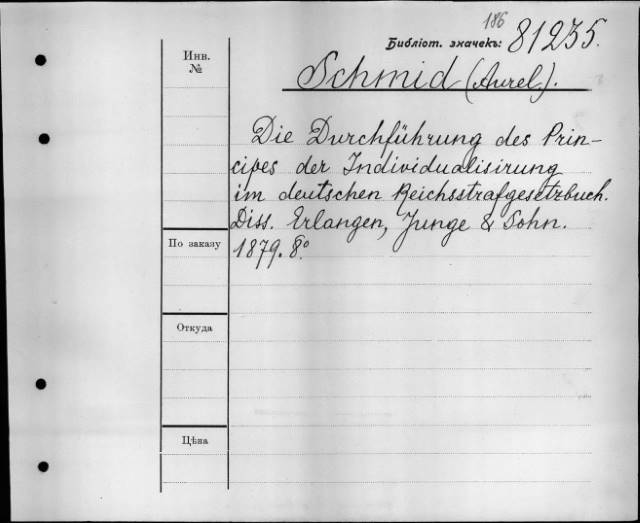 186
Библіот. значекъ: 81235.
Инв.
№
Schmid (Aurel).
Die Durchführung des Prin-
cipes der Individualisirung
im deutschen Reichsstrafgesetzbuch.
Diss. Erlangen, Junge & Sohn.
По заказу
1879. 8.°
Откуда
Цѣна